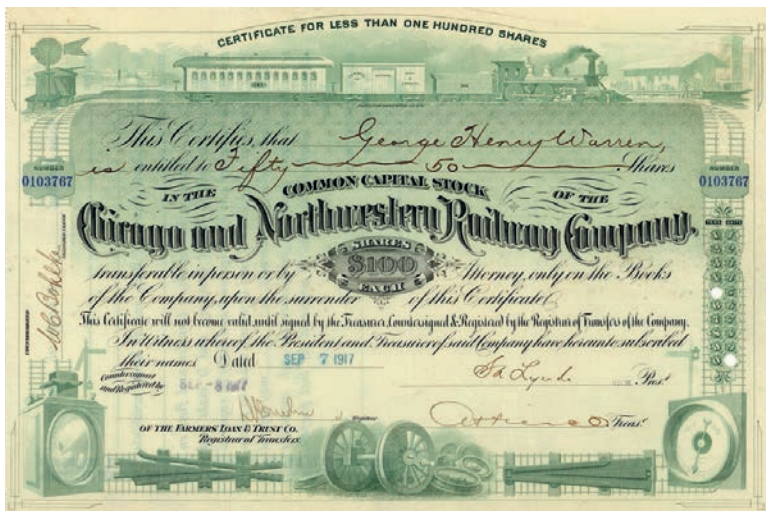 CERTIFICATE FOR LESS THAN ONE HUNDRED SHARES
This Certifies, that George Henry Warren,
is entitled to Fifty 50 Shares
NUMBER
0103767
NUMBER
0103767
IN THE COMMON CAPITAL STOCK OF THE
Chicago and Northwestern Railway Company.
transferable in person or by SHARES $100 EACH Attorney, only on the Books
of the Company, upon the surrender of this Certificate
This Certificate will not become valid until signed by the Treasurer, Countersigned & Registered by the Registrar of Transfers of the Company.
In Witness whereof the President and Treasurer of said Company have hereunto subscribed
their names Dated SEP 7 1917
Countersigned
and Registered by
SEP -8 1917
Lynde Prest.
Registrar
Treasr.
OF THE FARMERS' LOAN & TRUST CO.
Registrar of Transfers.
COUNTERSIGNED